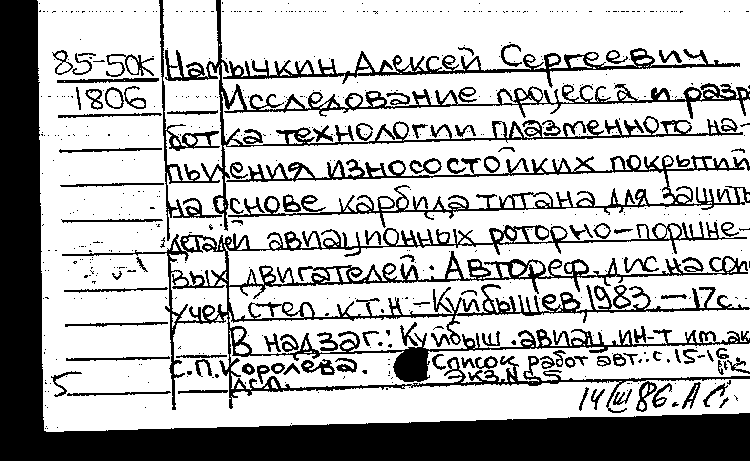 85-50К Намычкин, Алексей Сергеевич.
1806 Исследование процесса и разра
ботка технологии плазменного на-
пыления износостойких покрытий
на основе карбида титана для защиты
деталей авиационных роторно-поршне-
вых двигателей: Автореф. дис. на соис
учен. степ. к.т.н. - Куйбышев, 1983. - 17с.
В надзаг.: Куйбыш. авиац. ин-т им. ак
С.П. Королева. Список работ авт.: с. 15-16
5 ДСП. Экз. №55.
14 III 86. А.С.